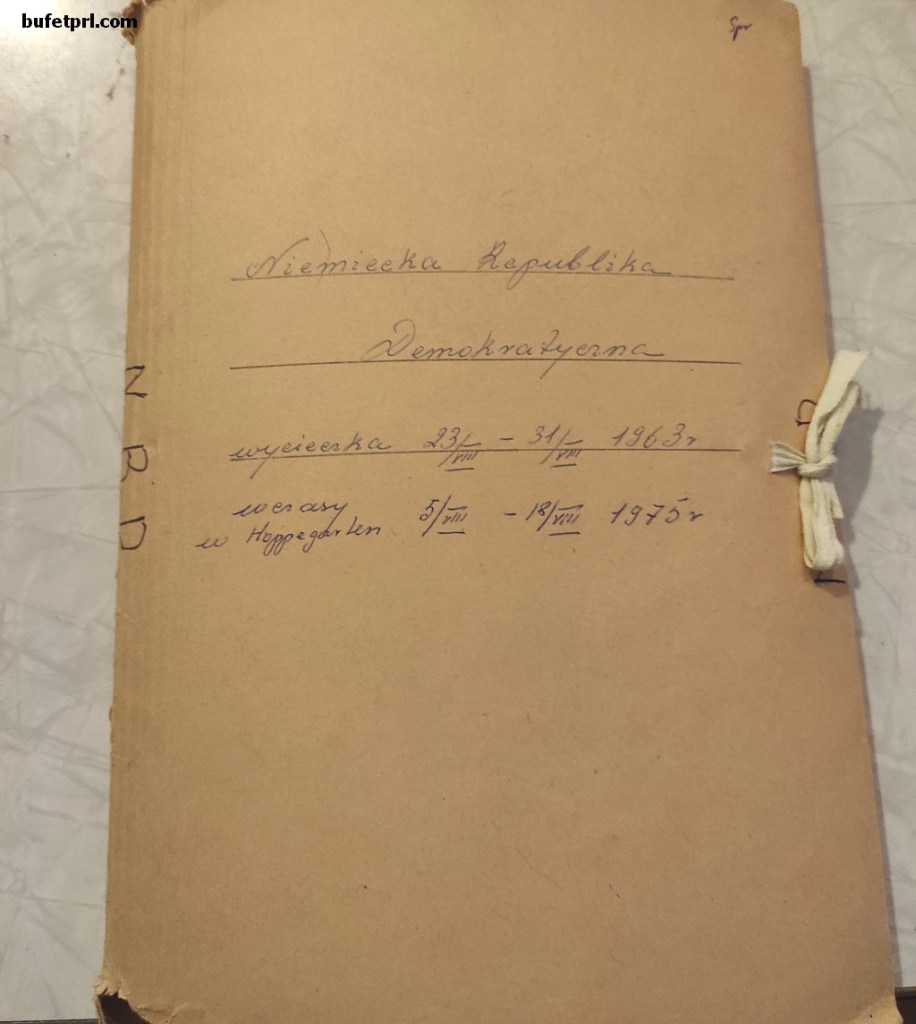 bufetprl.com
Spr
Niemiecka Republika
Demokratyczna
wycieczka 23/VIII - 31/VIII 1963r
wczasy
w Hoppegarten 5/VIII - 18/VIII 1975r
N R D